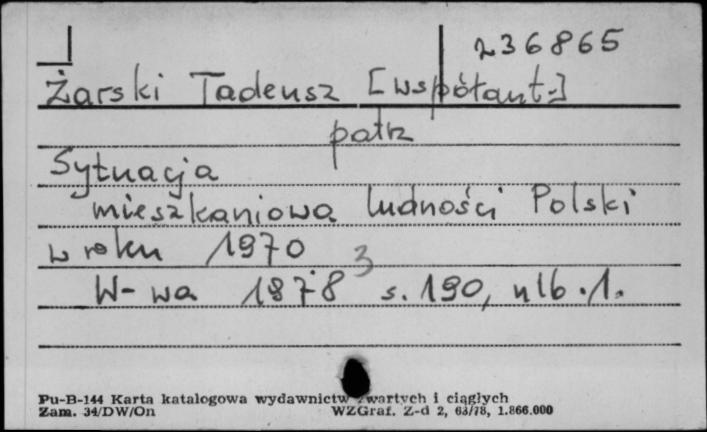 236865
Żarski Tadeusz [współaut.]
patrz
Sytuacja
mieszkaniowa ludności Polski
w roku 1970
W-wa 1978 3 s. 190, nlb. 1.
Pu-B-144 Karta katalogowa wydawnictw zwartych i ciągłych
Zam. 34/DW/On WZGraf. Z-d 2, 63/78, 1.866.000